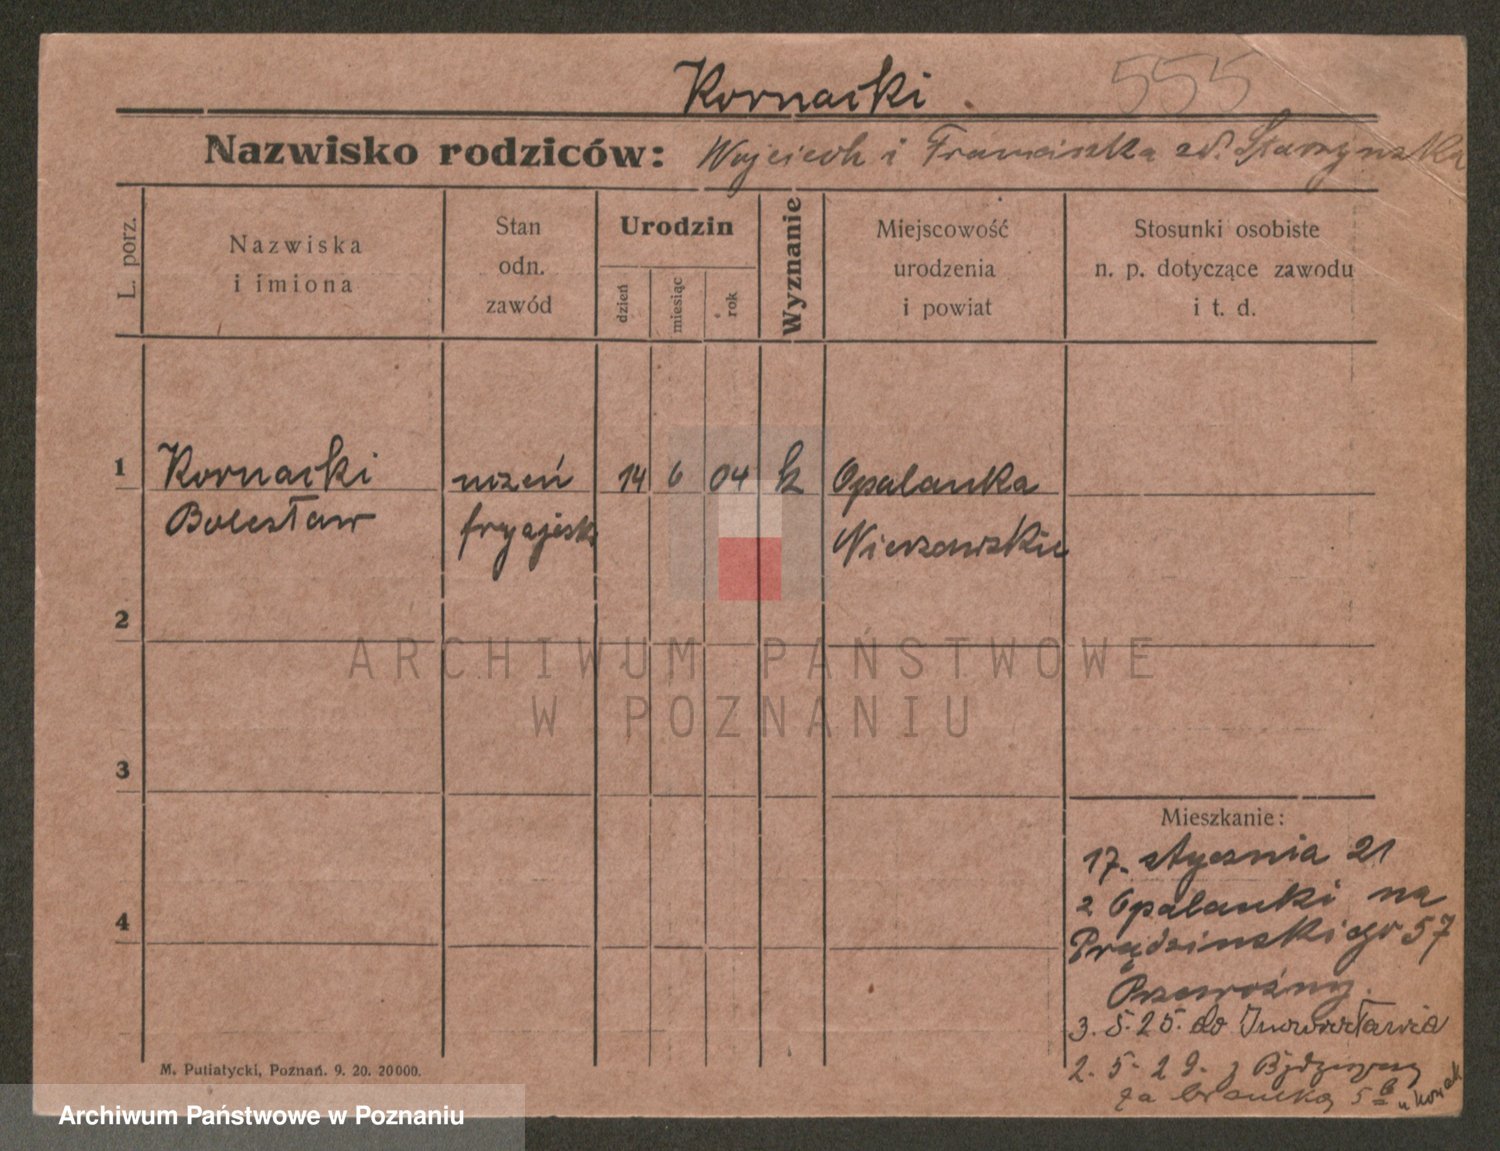 Kornacki
555
Nazwisko rodziców: Wojciech i Franciszka
L. porz.
Nazwiska i imiona
Stan odn. zawód
Urodzin
dzień
miesiąc
rok
Wyznanie
Miejscowość urodzenia i powiat
Stosunki osobiste n. p. dotyczące zawodu i t. d.
1
Kornacki
uczeń
14
6
04
k
Opalanka
Bolesław
fryzjersk
2
ARCHIWUM PAŃSTWOWE
W POZNANIU
3
4
Mieszkanie:
17. stycznia 21
z Opalanki na
Prądzinskiego 57
3. 5. 25. do Inowrocławia
2. 5. 29. z Bydgoszczy
M. Putiatycki, Poznań. 9. 20. 20000.
Archiwum Państwowe w Poznaniu